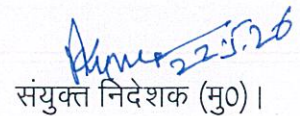 22.5.26
संयुक्त निदेशक (मु0)।